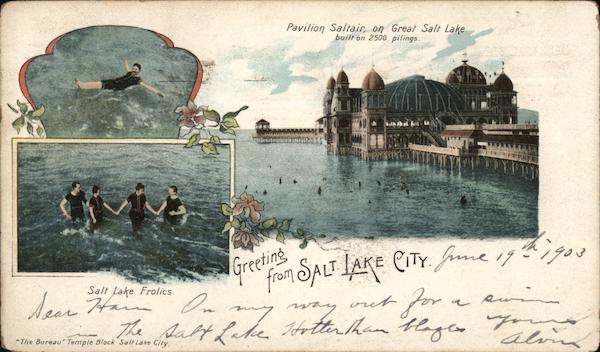 Pavilion Saltair, on Great Salt Lake
built on 2500 pilings.
Greeting
from SALT LAKE CITY. June 19th 1903
Salt Lake Frolics.
Dear Ham On my way out for a swim
in The Salt Lake Hotter than blazes yours
Alvin
"The Bureau" Temple Block Salt Lake City.